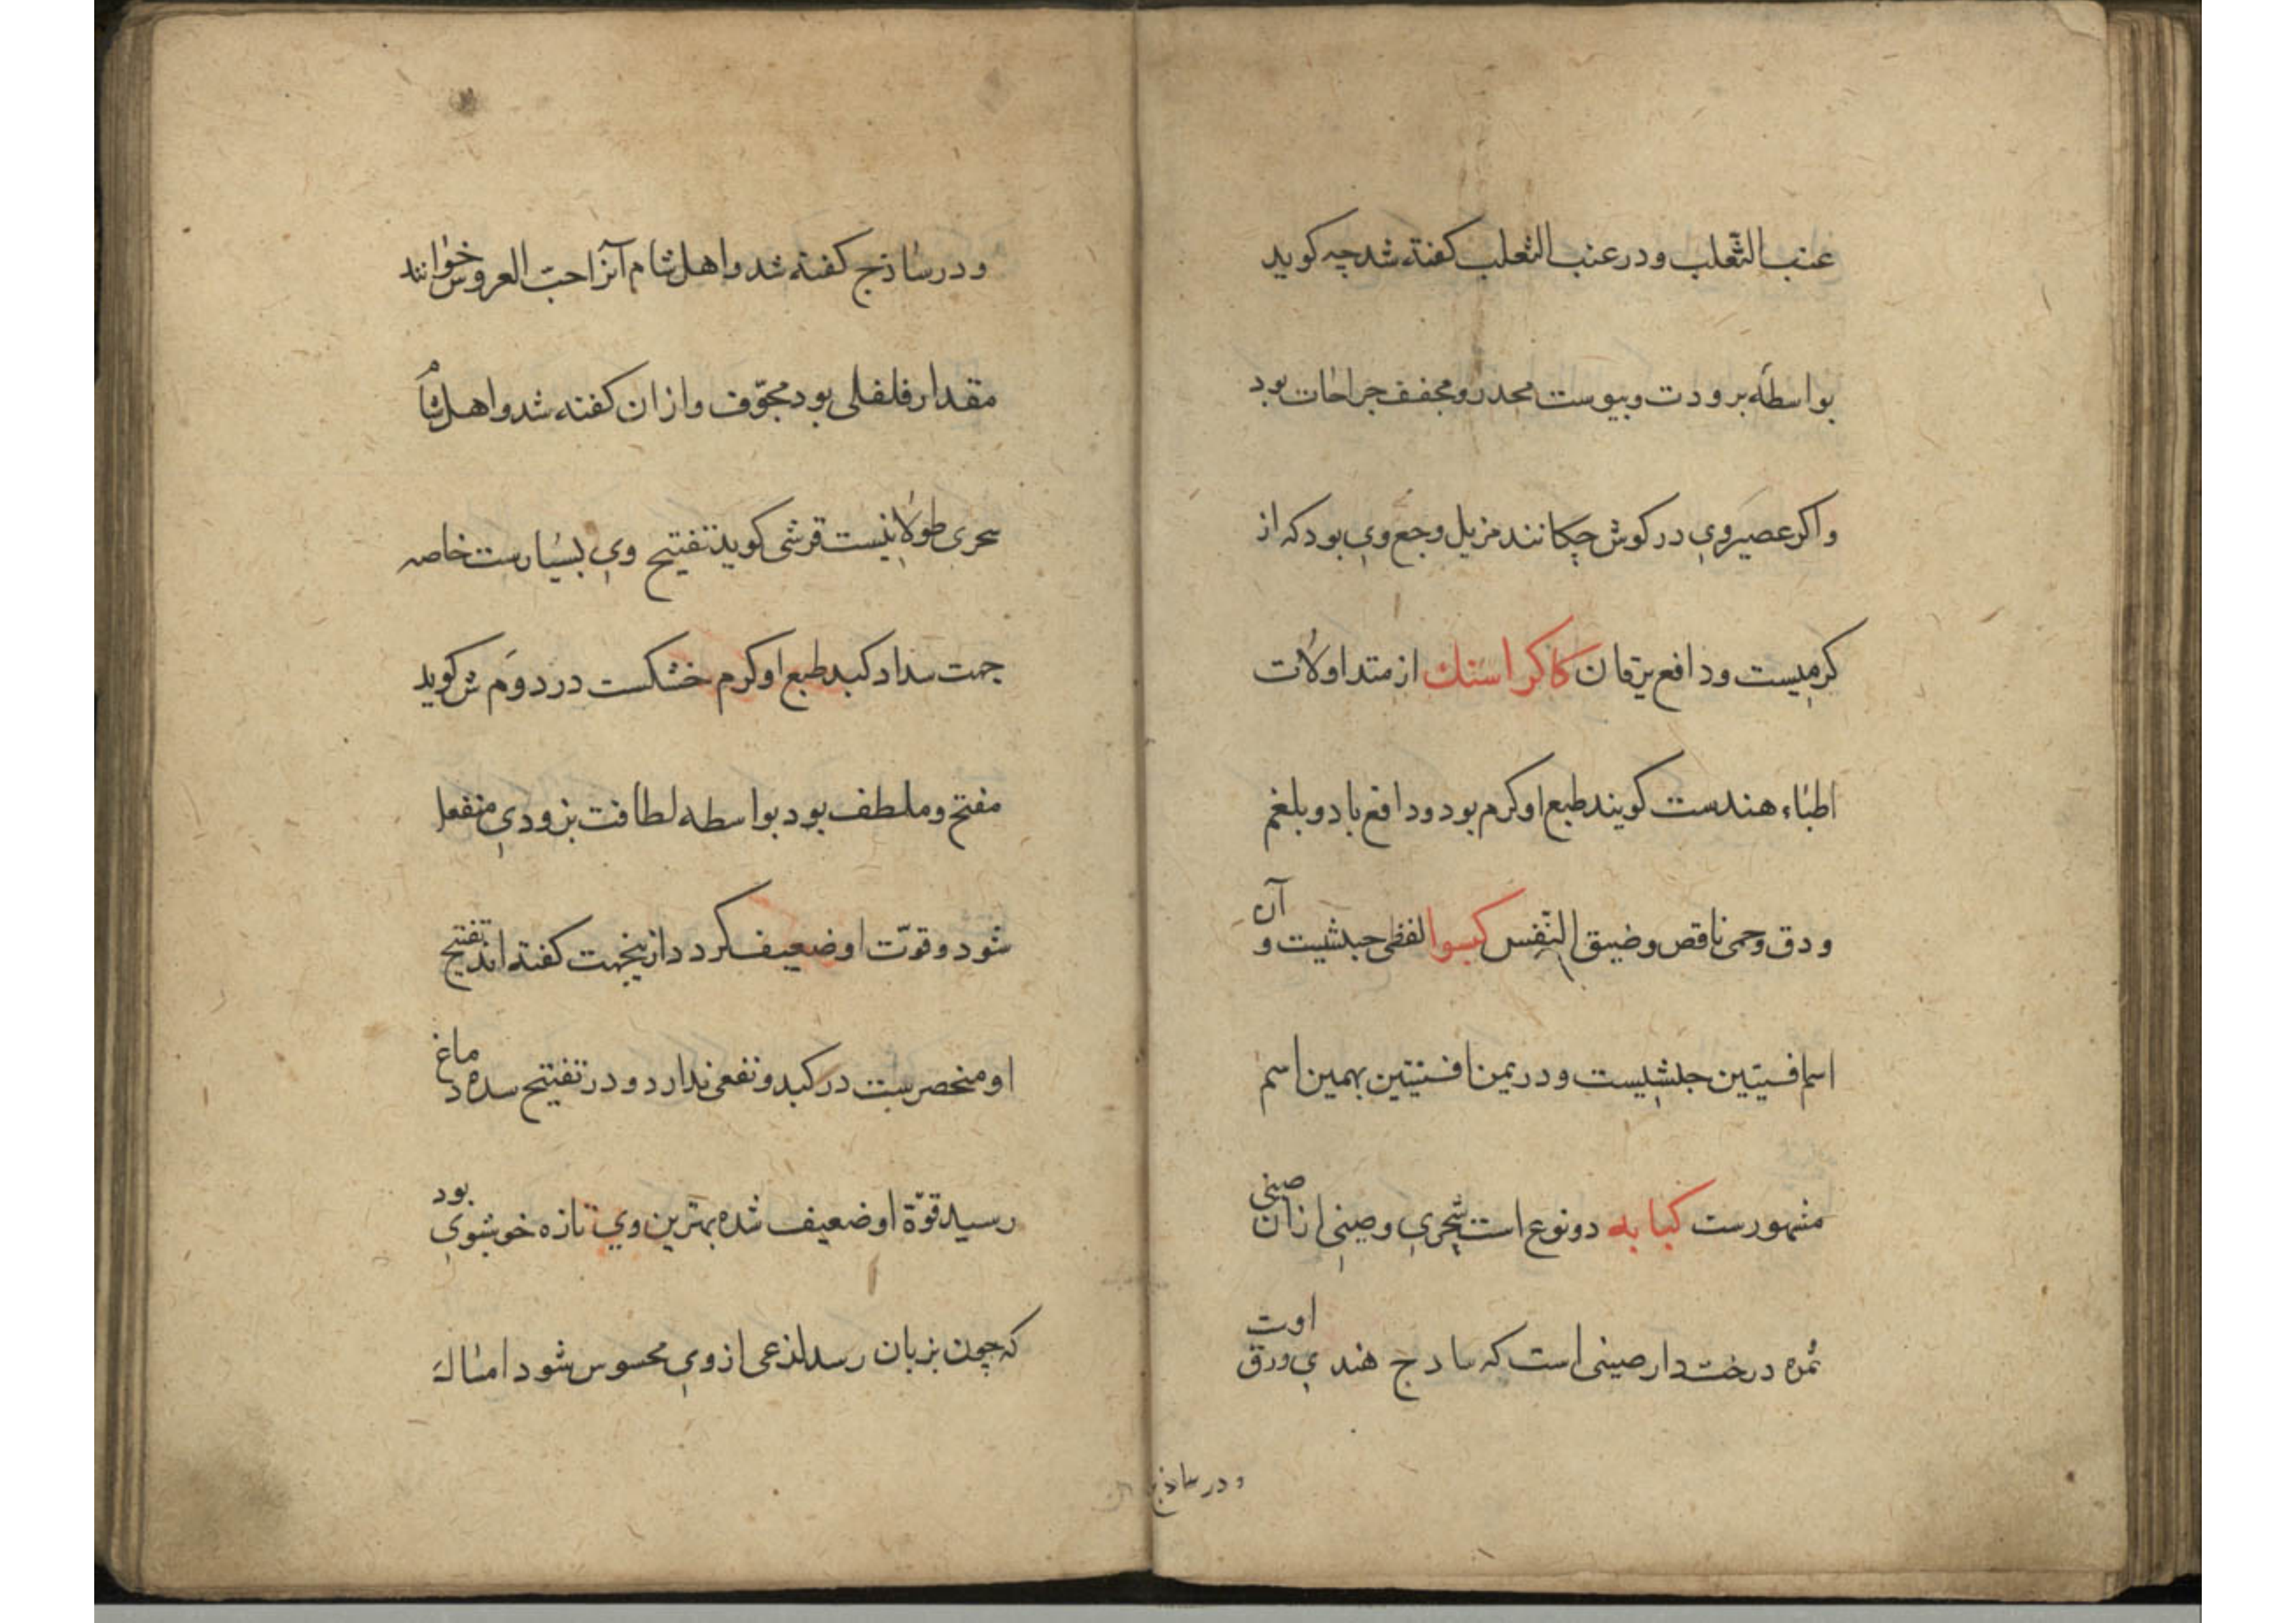 عنب الثعلب ودر عنب الثعلب کفته شد چه کوید
بواسطه برودت و یبوست مخدر و مجفف جراحات بود
واکر عصیر وی در کوش چکانند مزیل وجع وی بود که از
کرمیست و دافع یرقان کاکراسنك از متداولات
اطباء هندست کویند طبع او کرم بود ودافع باد و بلغم
ودق وحمی ناقص وضیق النّفس کسوا لفظی حبشیست و آن
اسم افسنتین حبشیست ودر یمن افسنتین بهمین اسم
مشهورست کبابه دو نوع است شجری وصینی ازان صینی
ثمره درخت دارصینی است که سادج هندی ورق اوت
ودر ساذج
ودر ساذج کفته شد واهل شام آنرا حبّ العروس خوانند
مقدار فلفلی بود مجوّف وازان کفته شد واهل شام
سحری طولانیست قرشی کوید تفتیح وی بسیارست خاصه
جهت سداد کبد طبع او کرم خشکست در دوم ش کوید
مفتح وملطف بود بواسطه لطافت بزودی منفعل
شود وقوّت او ضعیف کردد ازینجهت کفته اند تفتیح
او منحصرست در کبد ونفعی ندارد ودر تفتیح سده دماغ
رسید قوّة او ضعیف شده بهترین وی تازه خوشبوی بود
که چون بزبان رسد لذعی از وی محسوس شود امساك